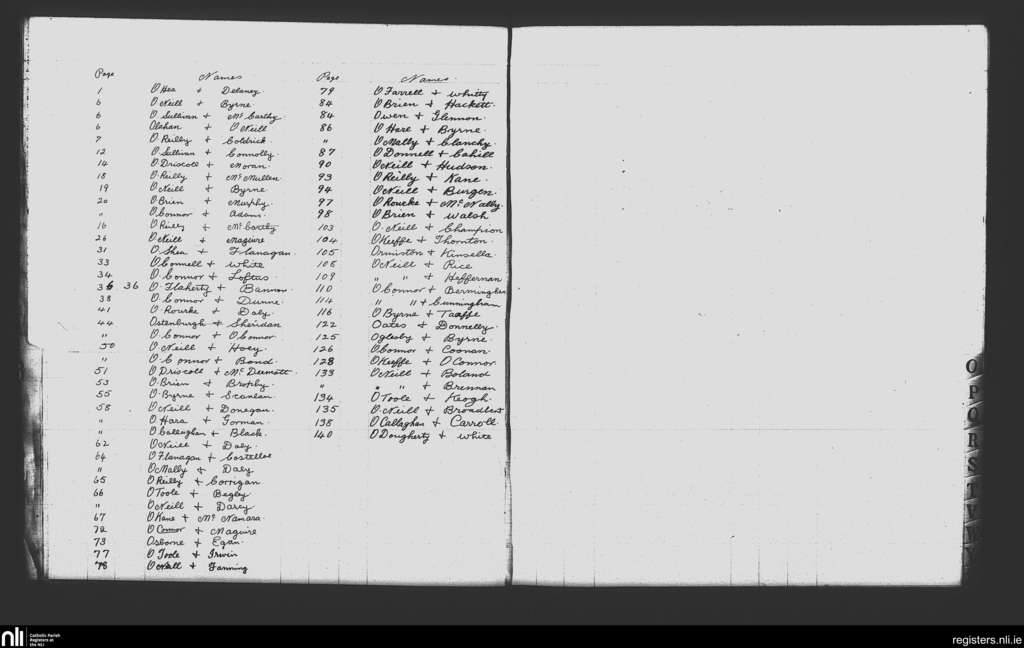 Page Names
1 O'Hea + Delaney
6 O'Neill + Byrne
6 O'Sullivan + McCarthy
6 Olahan + O'Neill
7 O'Reilly + Coldrick
12 O'Sullivan + Connolly
14 O'Driscoll + Moran
18 O'Reilly + McMullen
19 O'Neill + Byrne
20 O'Brien + Murphy
" O'Connor + Adams
16 O'Reilly + McCarthy
26 O'Neill + Maguire
31 O'Shea + Flanagan
33 O'Connell + White
34 O'Connor + Loftus
36 36 O'Flaherty + Bannon
38 O'Connor + Dunne
41 O'Rourke + Daly
44 Ostenburgh + Sheridan
" O'Connor + O'Connor
50 O'Neill + Hoey
" O'Connor + Bond
51 O'Driscoll + McDermott
53 O'Brien + Brophy
55 O'Byrne + Scanlan
58 O'Neill + Donegan
" O'Hara + Gorman
" O'Callaghan + Black
62 O'Neill + Daly
64 O'Flanagan + Costelloe
" O'Mally + Daly
65 O'Reilly + Corrigan
66 O'Toole + Begley
" O'Neill + Darcy
67 O'Kane + McNamara
72 O'Connor + Maguire
73 Osborne + Egan
77 O'Toole + Irwin
78 O'Neill + Fanning
Page Names
79 O'Farrell + Whitty
84 O'Brien + Hackett
84 Owen + Glennon
86 O'Hare + Byrne
" O'Mally + Clanchy
87 O'Donnell + Cahill
90 O'Neill + Hudson
93 O'Reilly + Kane
94 O'Neill + Burgen
97 O'Rourke + McNally
98 O'Brien + Walsh
103 O'Neill + Champion
104 O'Keeffe + Thornton
105 Ormiston + Kinsella
108 O'Neill + Rice
109 " " + Heffernan
110 O'Connor + Bermingham
114 " " + Cunningham
116 O'Byrne + Taaffe
122 Oates + Donnelly
125 Oglesby + Byrne
126 O'Connor + Coonan
128 O'Keeffe + O'Connor
133 O'Neill + Boland
" " " + Brennan
134 O'Toole + Keogh
135 O'Neill + Broadbent
138 O'Callaghan + Carroll
140 O'Dougherty + White
O
P Q
R
S
T
V
W
nli Catholic Parish Registers at the NLI
registers.nli.ie